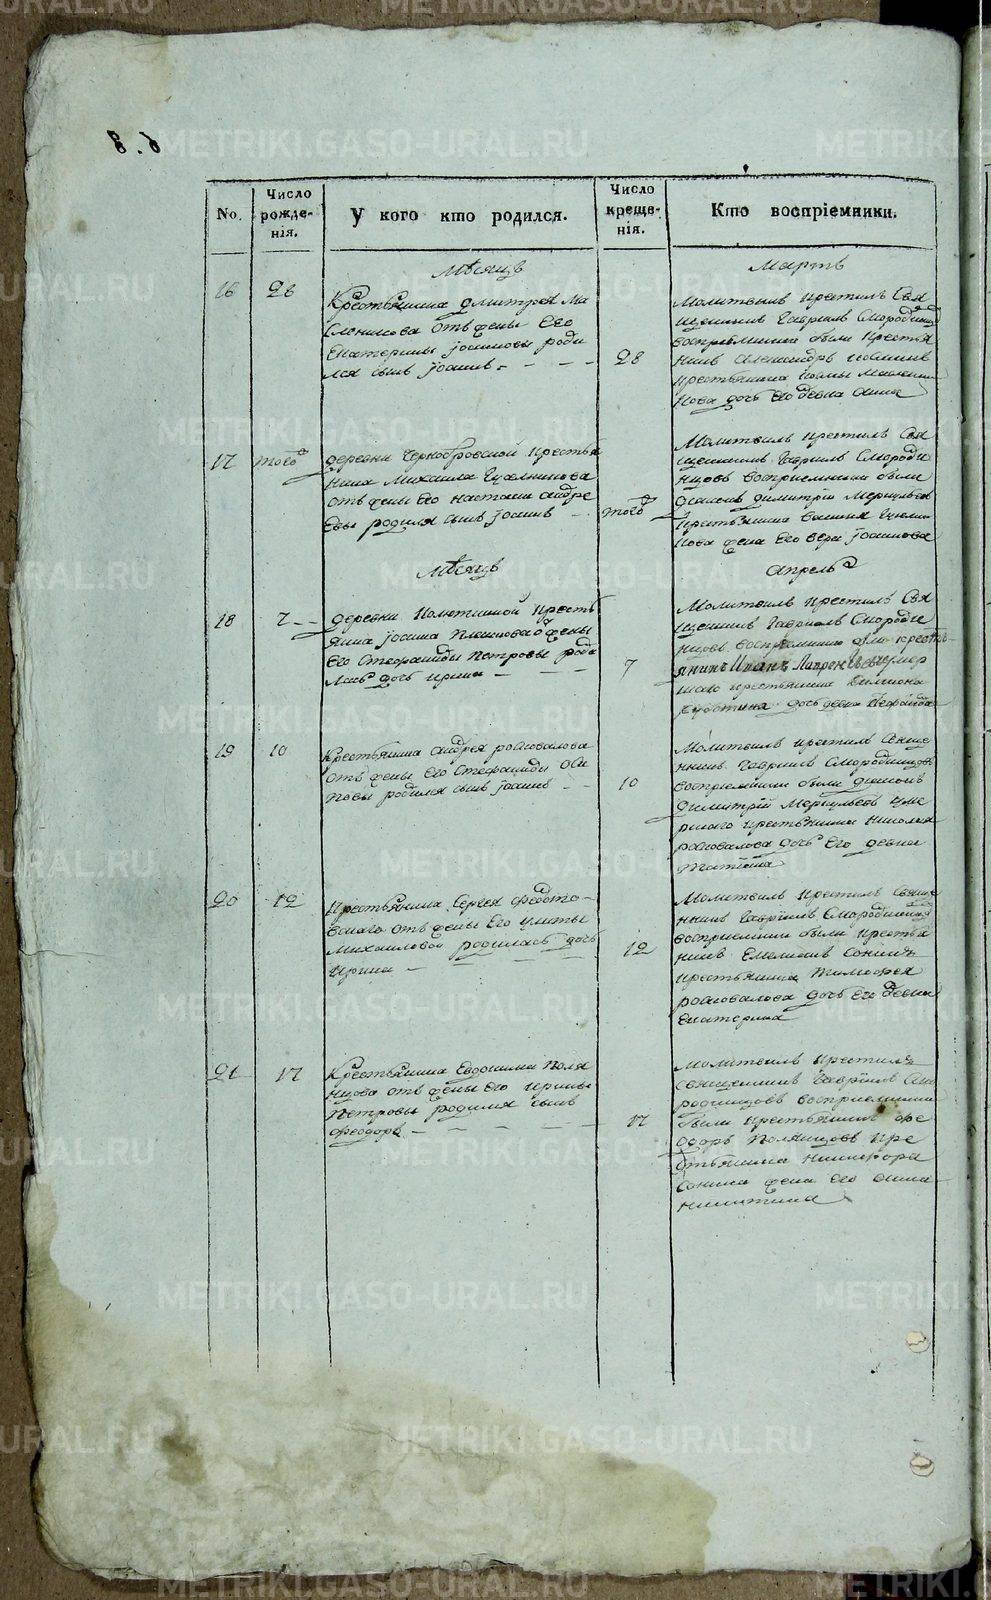 8. б
No.
Число рожде-нія.
У кого кто родился.
Число креще-нія.
Кто воспріемники.
Мѣсяцъ
Мартъ
16
28
Крестьянина Димитрея Ма
сленикова отъ жены Его
Екатерины Іоаиновы роди
лся сынъ Іоаннъ - - - -
28
Молитвилъ крестилъ Свя
щенникъ Гавріилъ Смородинцо
восприемники были крестья
нинъ Александръ
крестьянина
нова дочь его девка Анна
17
того
деревни Чернобровской крестья
нина Михаила
отъ жены Его Настасіи Андре
евы родился сынъ Іоаннъ -
того
Молитвилъ крестилъ Свя
щенникъ Гавріилъ Смороди
нцовъ восприемники были
дьяконъ Димитрій Меркурьевъ
крестьянина
нова жена Его Вера Іоаннова
Мѣсяцъ
Апрель
18
7 - -
деревни крестья
янина Іоанна жены
Его Стефаниды Петровы роди
лась дочь Ирина - - -
7
Молитвилъ крестилъ Свя
щенникъ Гавріилъ Смороди
нцовъ восприемники были крестья
янинъ Иванъ Лаврентьевъ умер
шаго крестьянина
дочь девка
19
10
Крестьянина Андрея Расковалова
отъ жены Его Стефаниды Оси
повы родился сынъ Іоаннъ - -
10
Молитвилъ крестилъ Свяще
нникъ Гавріилъ Смородинцовъ
восприемники были дьяконъ
Димитрій Меркурьевъ уме
ршаго крестьянина Николая
расковалова дочь Его девка
Татіана
20
12
Крестьянина Сергея Федото-
вскаго отъ жены Его Улиты
Михайловой родилась дочь
Ирина - - - -
12
Молитвилъ крестилъ Свяще
нникъ Гавріилъ Смородинцо
восприемники были крестья
нинъ Емелианъ Сонинъ
крестьянина Тимофея
расковалова дочь Его девка
Екатерина
21
17
Крестьянина Евдокима Поля
нцова отъ жены Его Ирины
Петровы родился сынъ
Феодоръ - - - -
17
Молитвилъ крестилъ
Священникъ Гавріилъ Смо
родинцовъ восприемники
были крестьянинъ Фе
одоръ Полянцовъ кре
стьянина Никифора
Сонина жена Его Анна
Никитина